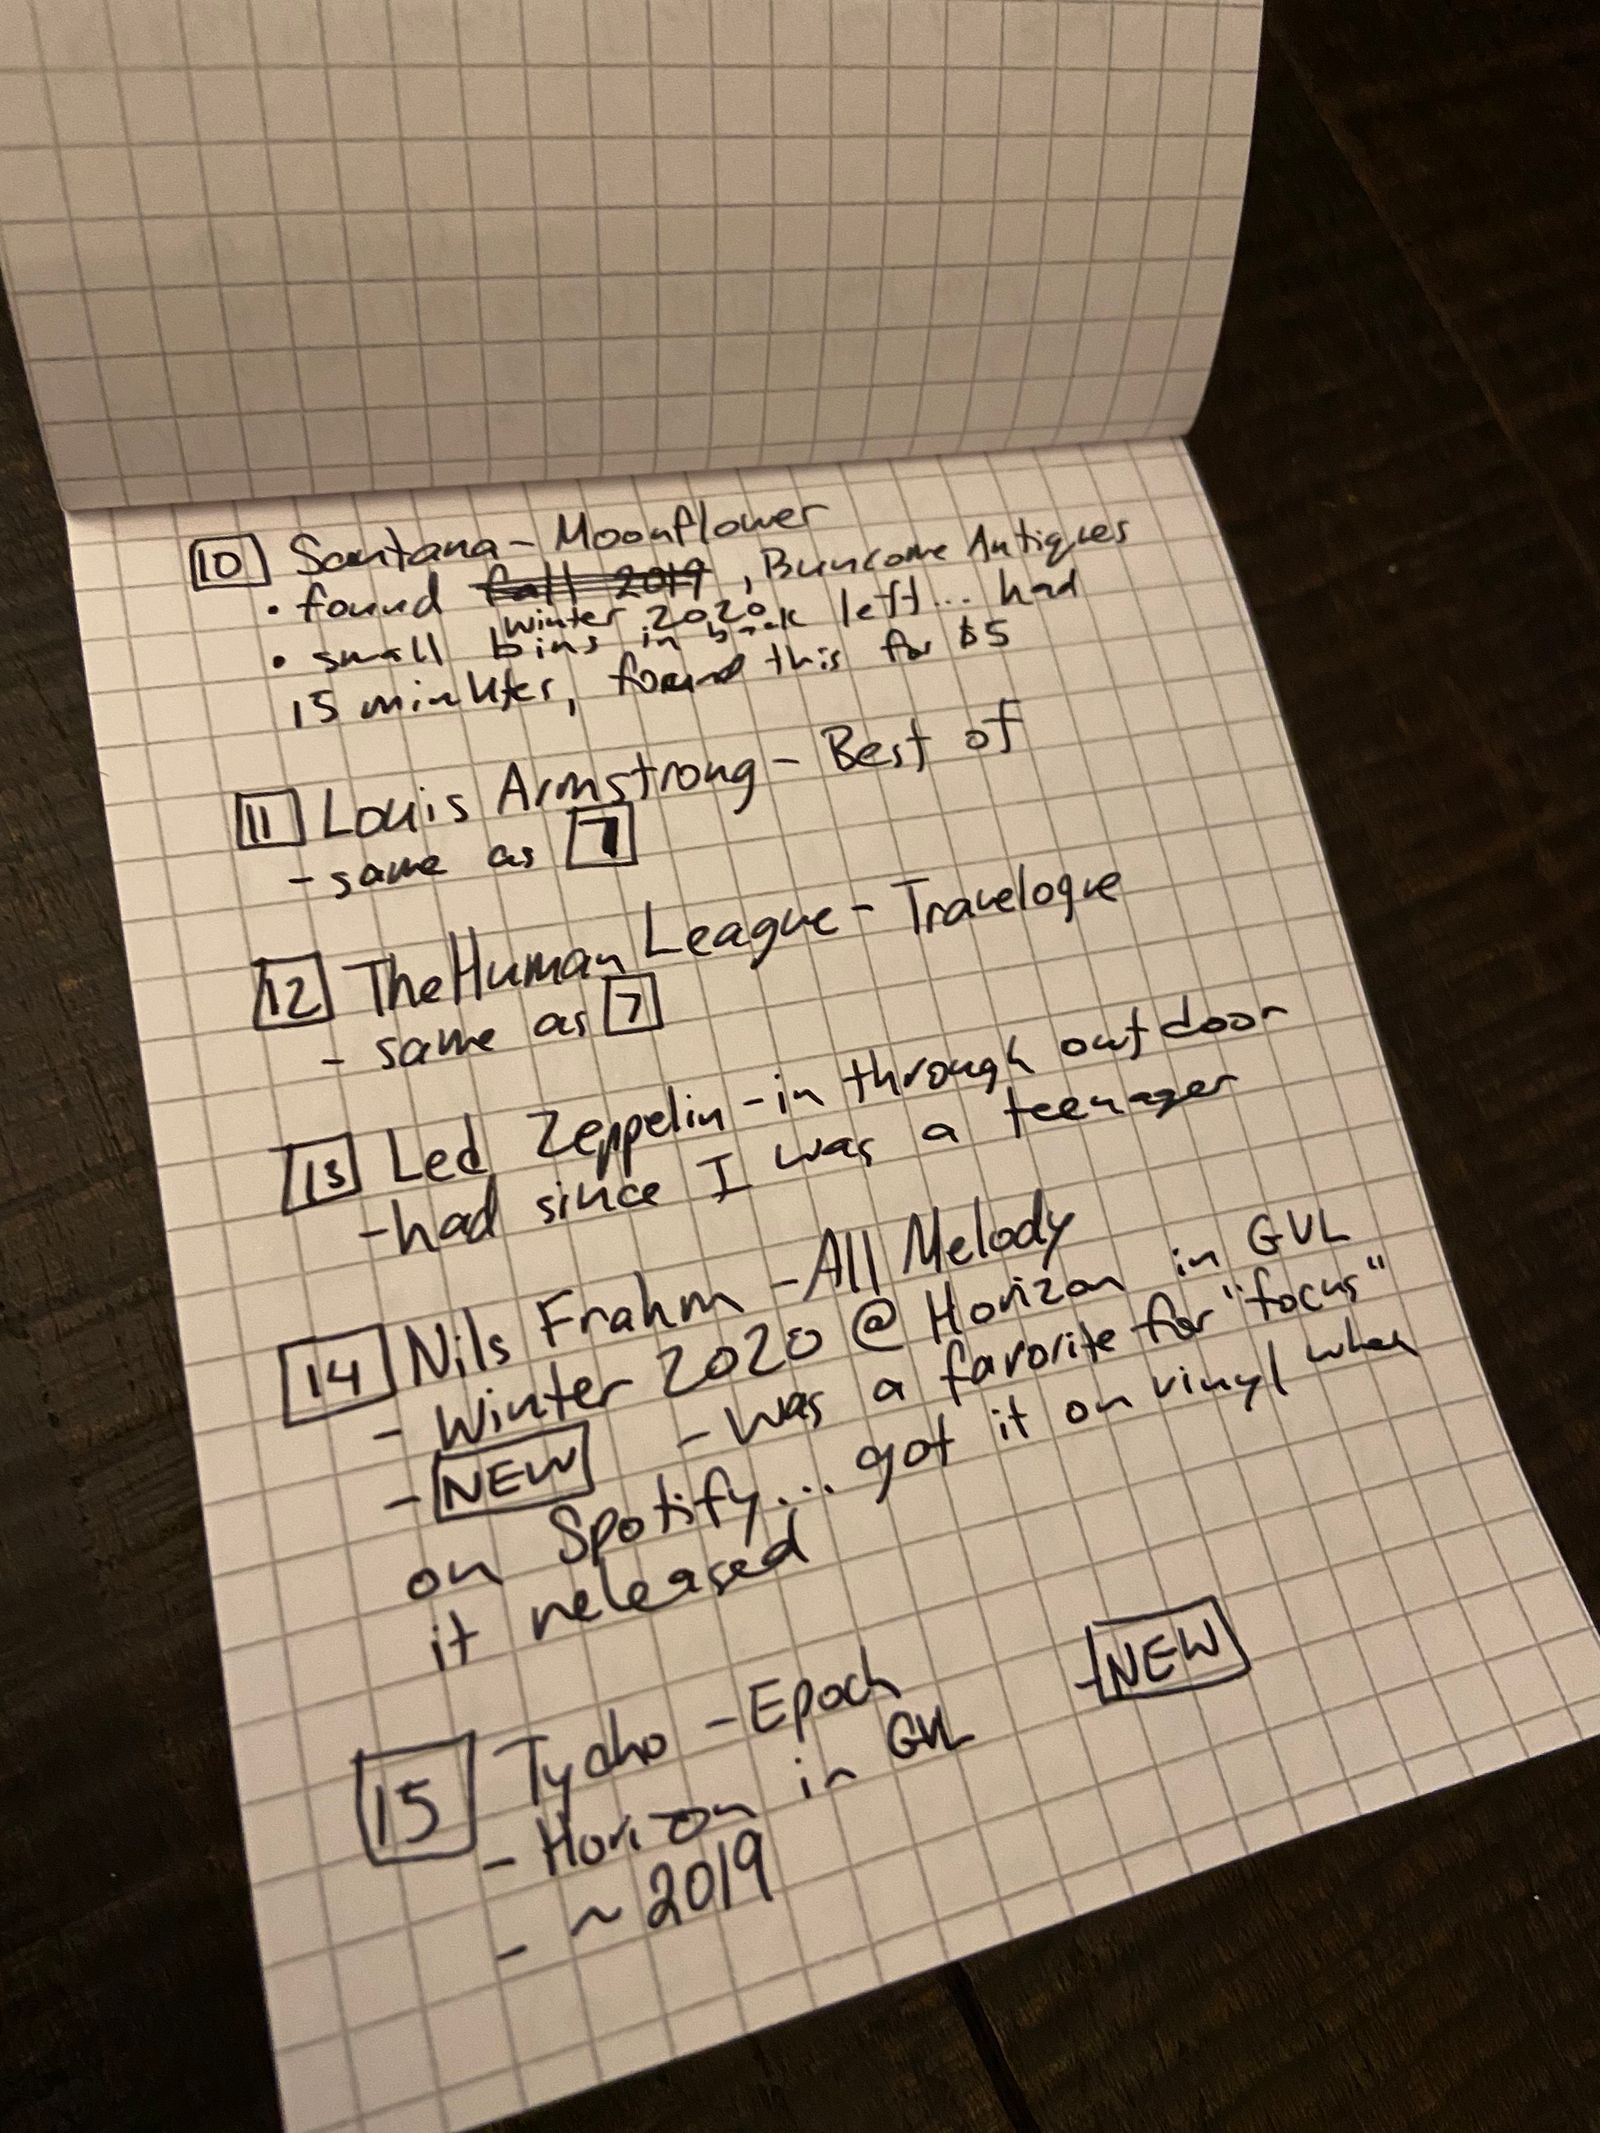 10 Santana - Moonflower
• found fall 2019, Buncome Antiques
winter 2020
• small bins in back left... had
15 minutes, found this for $5
11 Louis Armstrong - Best of
- same as 7
12 The Human League - Travelogue
- same as 7
13 Led Zeppelin - in through out door
- had since I was a teenager
14 Nils Frahm - All Melody
- Winter 2020 @ Horizon in GVL
- NEW - was a favorite for "focus"
on Spotify... got it on vinyl when
it released
15 Tycho - Epoch - NEW
- Horizon in GVL
- ~2019